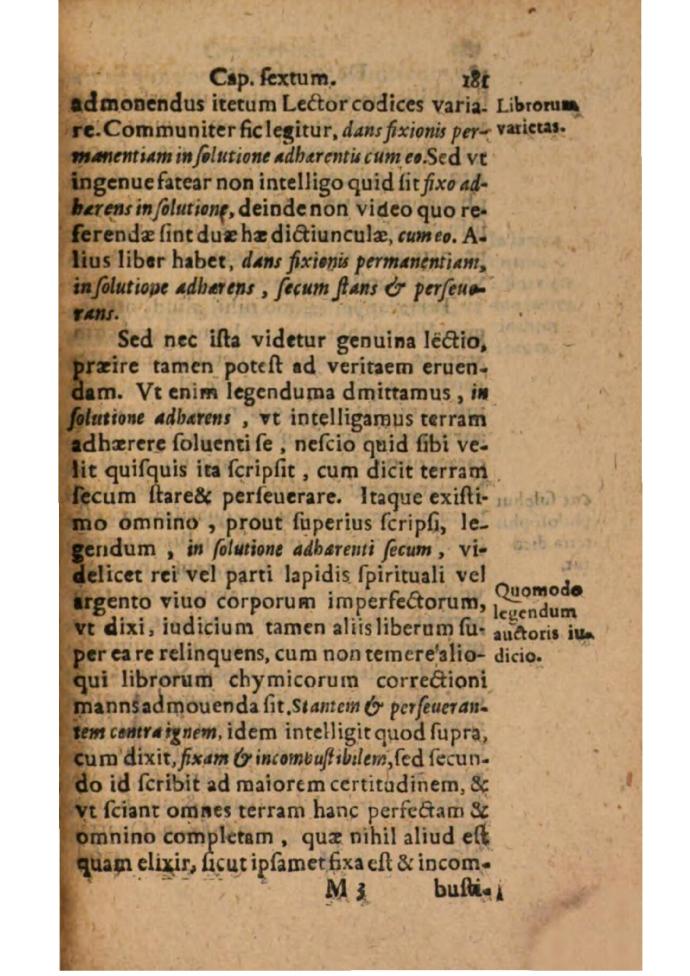 Cap. ſextum. 181
admonendus itetum Lector codices varia-
re. Communiter ſic legitur, dans fixionis per-
manentiam in ſolutione adhærentis cum eo. Sed vt
ingenue fatear non intelligo quid ſit fixo ad-
hærens in ſolutione, deinde non video quo re-
ferendæ ſint duæ hæ dictiunculæ, cum eo. A-
lius liber habet, dans fixionis permanentiam,
in ſolutione adhærens, ſecum ſtans & perſeue-
rans.
Sed nec iſta videtur genuina lectio,
præire tamen poteſt ad veritaem eruen-
dam. Vt enim legenduma dmittamus, in
ſolutione adhærens, vt intelligamus terram
adhærere ſoluenti ſe, neſcio quid ſibi ve-
lit quiſquis ita ſcripſit, cum dicit terram
ſecum ſtare& perſeuerare. Itaque exiſti-
mo omnino, prout ſuperius ſcripſi, le-
gendum, in ſolutione adhærenti ſecum, vi-
delicet rei vel parti lapidis ſpirituali vel
argento viuo corporum imperfectorum,
vt dixi, iudicium tamen aliis liberum ſu-
per ea re relinquens, cum non temere alio-
qui librorum chymicorum correctioni
mannsadmouenda ſit. Stantem & perſeueran-
tem contra ignem, idem intelligit quod ſupra,
cum dixit, fixam & incombuſtibilem, ſed ſecun-
do id ſcribit ad maiorem certitudinem, &
vt ſciant omnes terram hanc perfectam &
omnino completam, quæ nihil aliud eſt
quam elixir, ſicut ipſamet fixa eſt & incom-
M 3 buſti-
Librorum
varietas.
Quomodo
legendum
auctoris iu-
dicio.